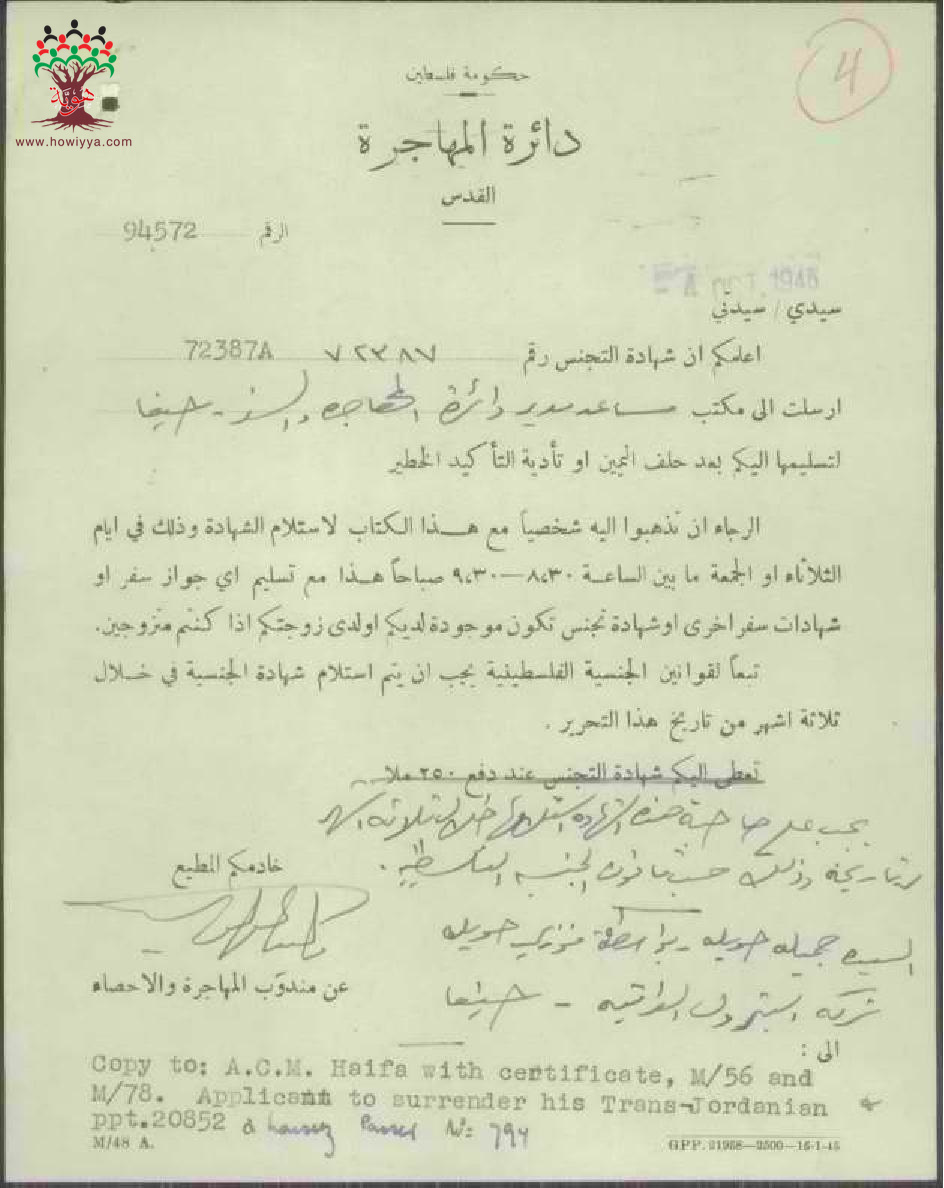 حكومة فلسطين
4
دائرة المهاجرة
هوية
www.howiyya.com
القدس
الرقم 94572
1946
سيدي / سيدتي
اعلمكم ان شهادة التجنس رقم ٧٢٣٨٧ 72387A
ارسلت الى مكتب مساعد مدير دائرة المهاجرة والسفر - حيفا
لتسليمها اليكم بعد حلف اليمين او تأدية التأكيد الخطير
الرجاء ان تذهبوا اليه شخصياً مع هذا الكتاب لاستلام الشهادة وذلك في ايام
الثلاثاء او الجمعة ما بين الساعة ٨،٣٠—٩،٣٠ صباحاً هذا مع تسليم اي جواز سفر او
شهادات سفر اخرى او شهادة تجنس تكون موجودة لديكم او لدى زوجتكم اذا كنتم متزوجين.
تبعاً لقوانين الجنسية الفلسطينية يجب ان يتم استلام شهادة الجنسية في خلال
ثلاثة اشهر من تاريخ هذا التحرير .
تعطى اليكم شهادة التجنس عند دفع ٢٥٠ ملا
يجب على صاحبة هذه الشهادة استلامها خلال ثلاثة اشهر
من تاريخه وذلك حسب قانون الجنسية الفلسطينية .
خادمكم المطيع
السيدة جميله حويله - بواسطة فوزي حويله
عن مندوب المهاجرة والاحصاء
شركة بترول العراقيه - حيفا
الى :
Copy to: A.C.M. Haifa with certificate, M/56 and
M/78. Applicant to surrender his Trans-Jordanian
ppt.20852 & Laissez Passer No: 794
M/48 A.
GPP. 21958—2500—16-1-45